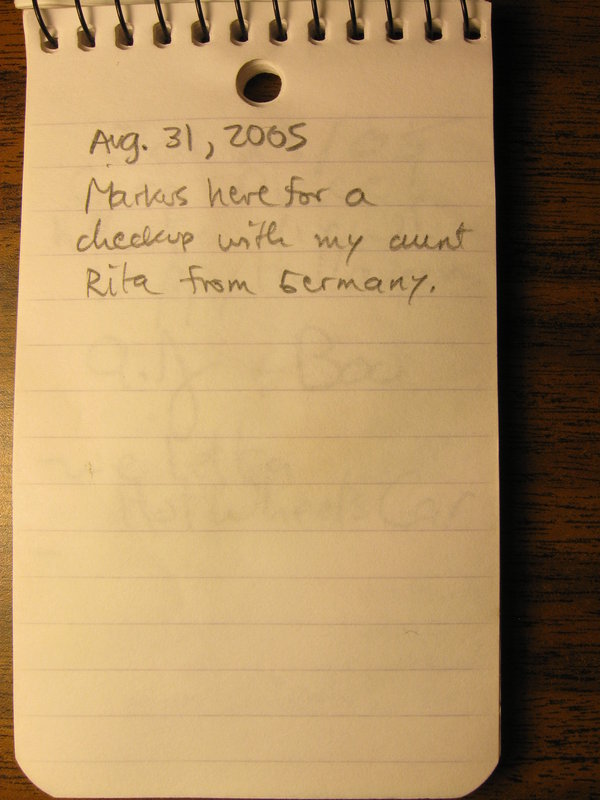 Aug. 31, 2005
Markus here for a
checkup with my aunt
Rita from Germany.